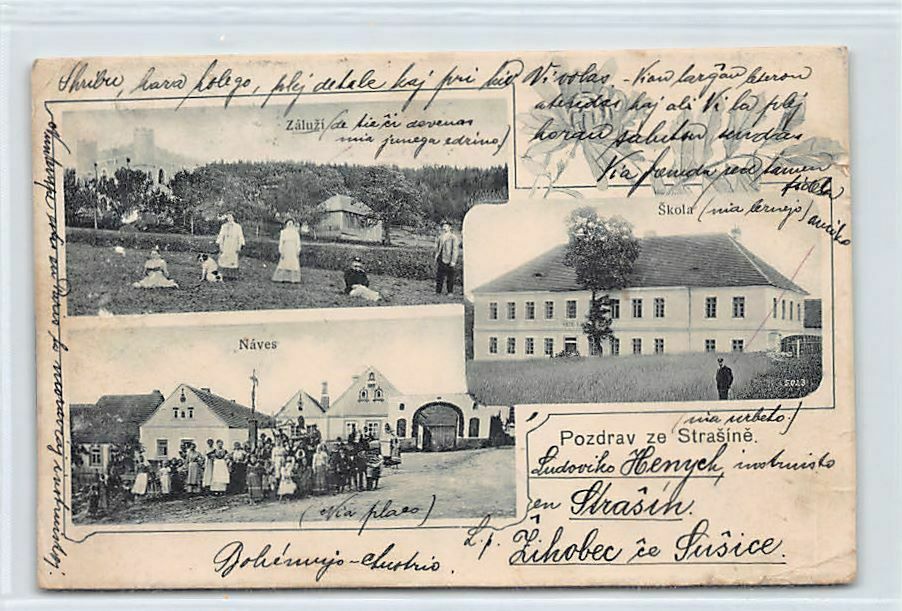 Skribu, kara kolego, plej detale kaj pri kio Vi volas - Kun largâu leteron
atendas kaj al Vi la plej
koran saluton sendas
Via fremda sed tamen
fidela
amiko
Záluží (de tie ĉi devenas
mia junega edzino)
Škola (nia lernejo)
Náves
(Nia placo)
(nia urbeto.)
Pozdrav ze Strašíně.
Ludoviko Henych, instruisto
en Strašín.
L. p. Žihobec ĉe Sušice.
Bohémujo-Austrio.
5023